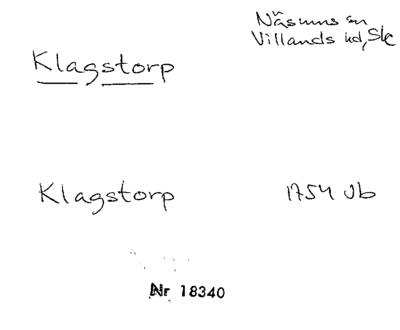 Näsums sn
Villands hd, Sk
Klagstorp
Klagstorp
1754 Jb
Nr 18340